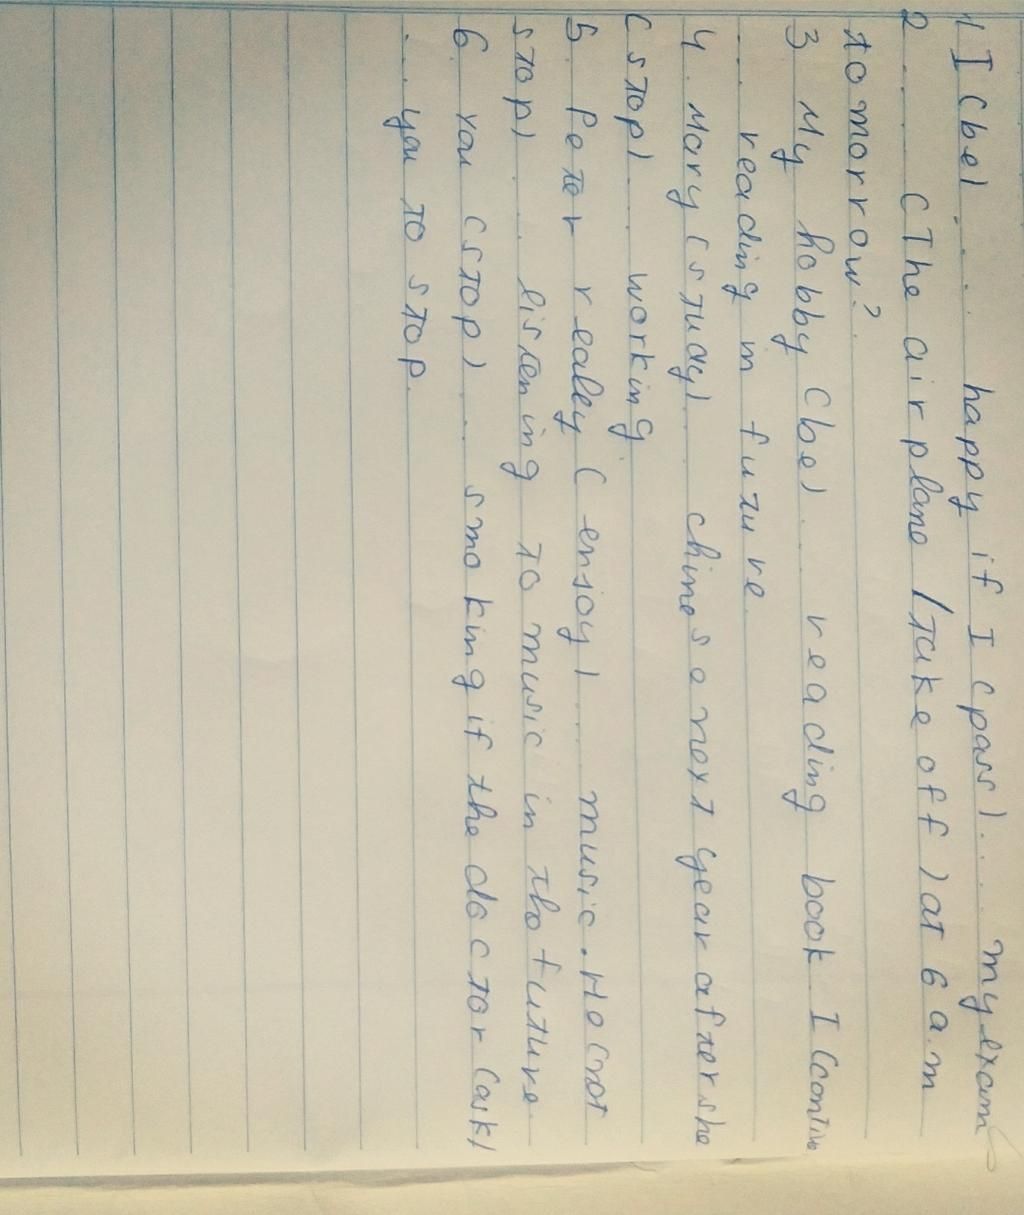 1 I (be) .... happy if I (pass) .... my exam
2 .... (The airplane / take off) at 6 a.m
tomorrow?
3 My hobby (be) .... reading book. I (continue
.... reading in future.
4. Mary (study) .... chinese next year after she
(stop) .... working.
5. Peter realey (enjoy) .... music. He (not
stop) .... listening to music in the future
6 You (stop) .... smoking if the doctor (ask)
.... you to stop.